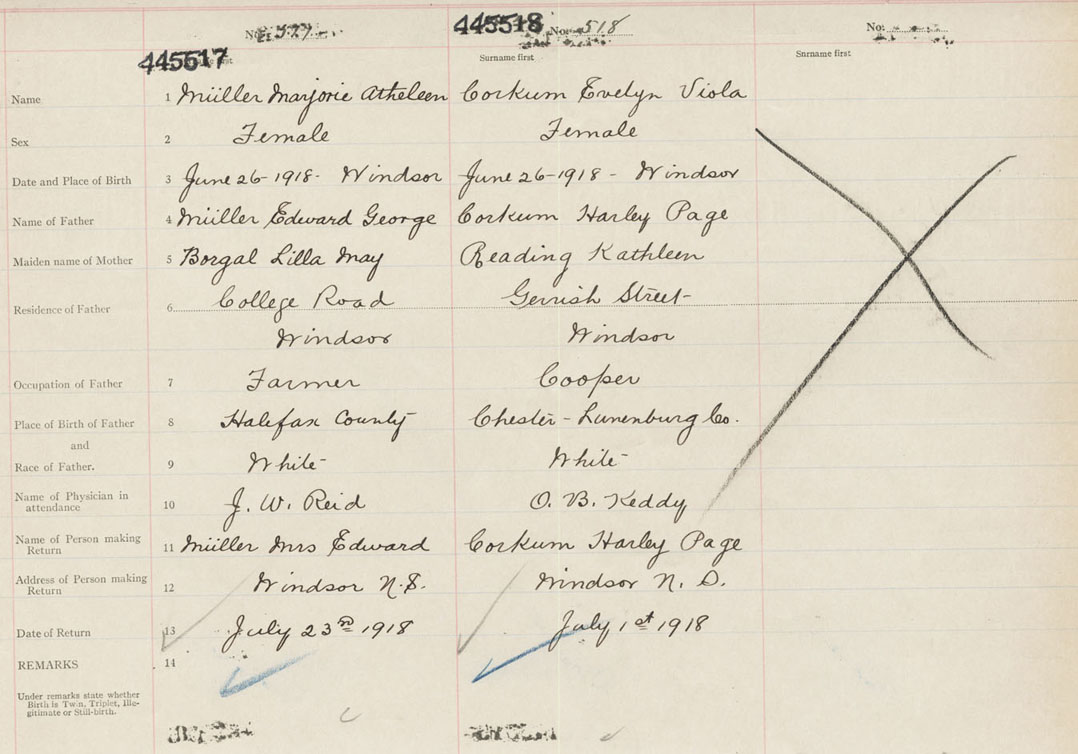 445517
445518 No. 518
No.
Surname first
Surname first
Name 1 Müller Marjorie Atheleen Corkum Evelyn Viola
Sex 2 Female Female
Date and Place of Birth 3 June 26-1918- Windsor June 26-1918- Windsor
Name of Father 4 Müller Edward George Corkum Harley Page
Maiden name of Mother 5 Borgal Lilla May Reading Kathleen
Residence of Father 6 College Road Gerrish Street-
Windsor Windsor
Occupation of Father 7 Farmer Cooper
Place of Birth of Father 8 Halifax County Chester-Lunenburg Co.
and
Race of Father. 9 White White
Name of Physician in attendance 10 J. W. Reid O. B. Keddy
Name of Person making Return 11 Müller Mrs Edward Corkum Harley Page
Address of Person making Return 12 Windsor N.S. Windsor N. S.
Date of Return 13 July 23rd 1918 July 1st 1918
REMARKS 14
Under remarks state whether
Birth is Twin, Triplet, Ille-
gitimate or Still-birth.